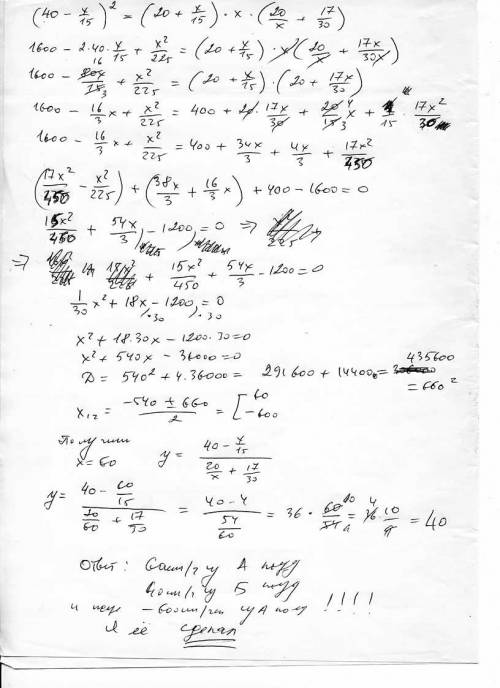 (40 - x/15)² = (20 + x/15) · x · (20/x + 17/30)
1600 - 2·40·x/15 + x²/225 = (20 + x/15) · x (20/x + 17x/30x)
1600 - 80x/15 + x²/225 = (20 + x/15) · (20 + 17x/30)
1600 - 16/3 x + x²/225 = 400 + 20·17x/30 + 20/15 x + 1/15 · 17x²/30
1600 - 16/3 x + x²/225 = 400 + 34x/3 + 4x/3 + 17x²/450
(17x²/450 - x²/225) + (38x/3 + 16/3 x) + 400 - 1600 = 0
15x²/450 + 54x/3 - 1200 = 0 ⇒
⇒ 15x²/450 + 54x/3 - 1200 = 0
1/30 x² + 18x - 1200 = 0
·30 ·30
x² + 18·30x - 1200·30 = 0
x² + 540x - 36000 = 0
D = 540² + 4·36000 = 291600 + 144000 = 435600
= 660²
x₁₂ = (-540 ± 660)/2 = [60 -600
Получили
x = 60 y = (40 - x/15)/(20/x + 17/30)
y = (40 - 60/15)/(20/60 + 17/30) = (40 - 4)/(54/60) = 36 · 60/54 = 36 · 10/9 = 40
Ответ: 60 А
40 Б
и - 600 А !!!!
Я её сделал